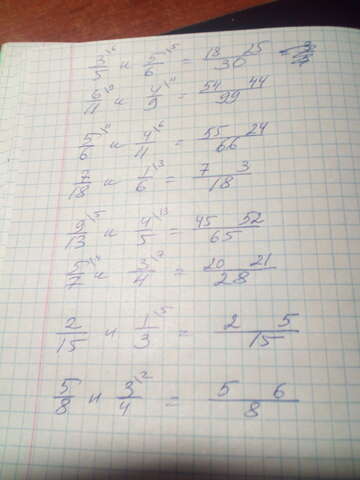 3/5 \6 и 5/6 \5 = 18 25/30
6/11 \9 и 4/9 \11 = 54 44/99
5/6 \11 и 4/11 \6 = 55 24/66
7/18 и 1/6 \3 = 7 3/18
9/13 \5 и 4/5 \13 = 45 52/65
5/7 \4 и 3/4 \7 = 20 21/28
2/15 и 1/3 \5 = 2 5/15
5/8 и 3/4 \2 = 5 6/8